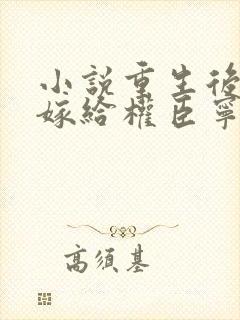 小說重生後
嫁給權臣寧
高須基